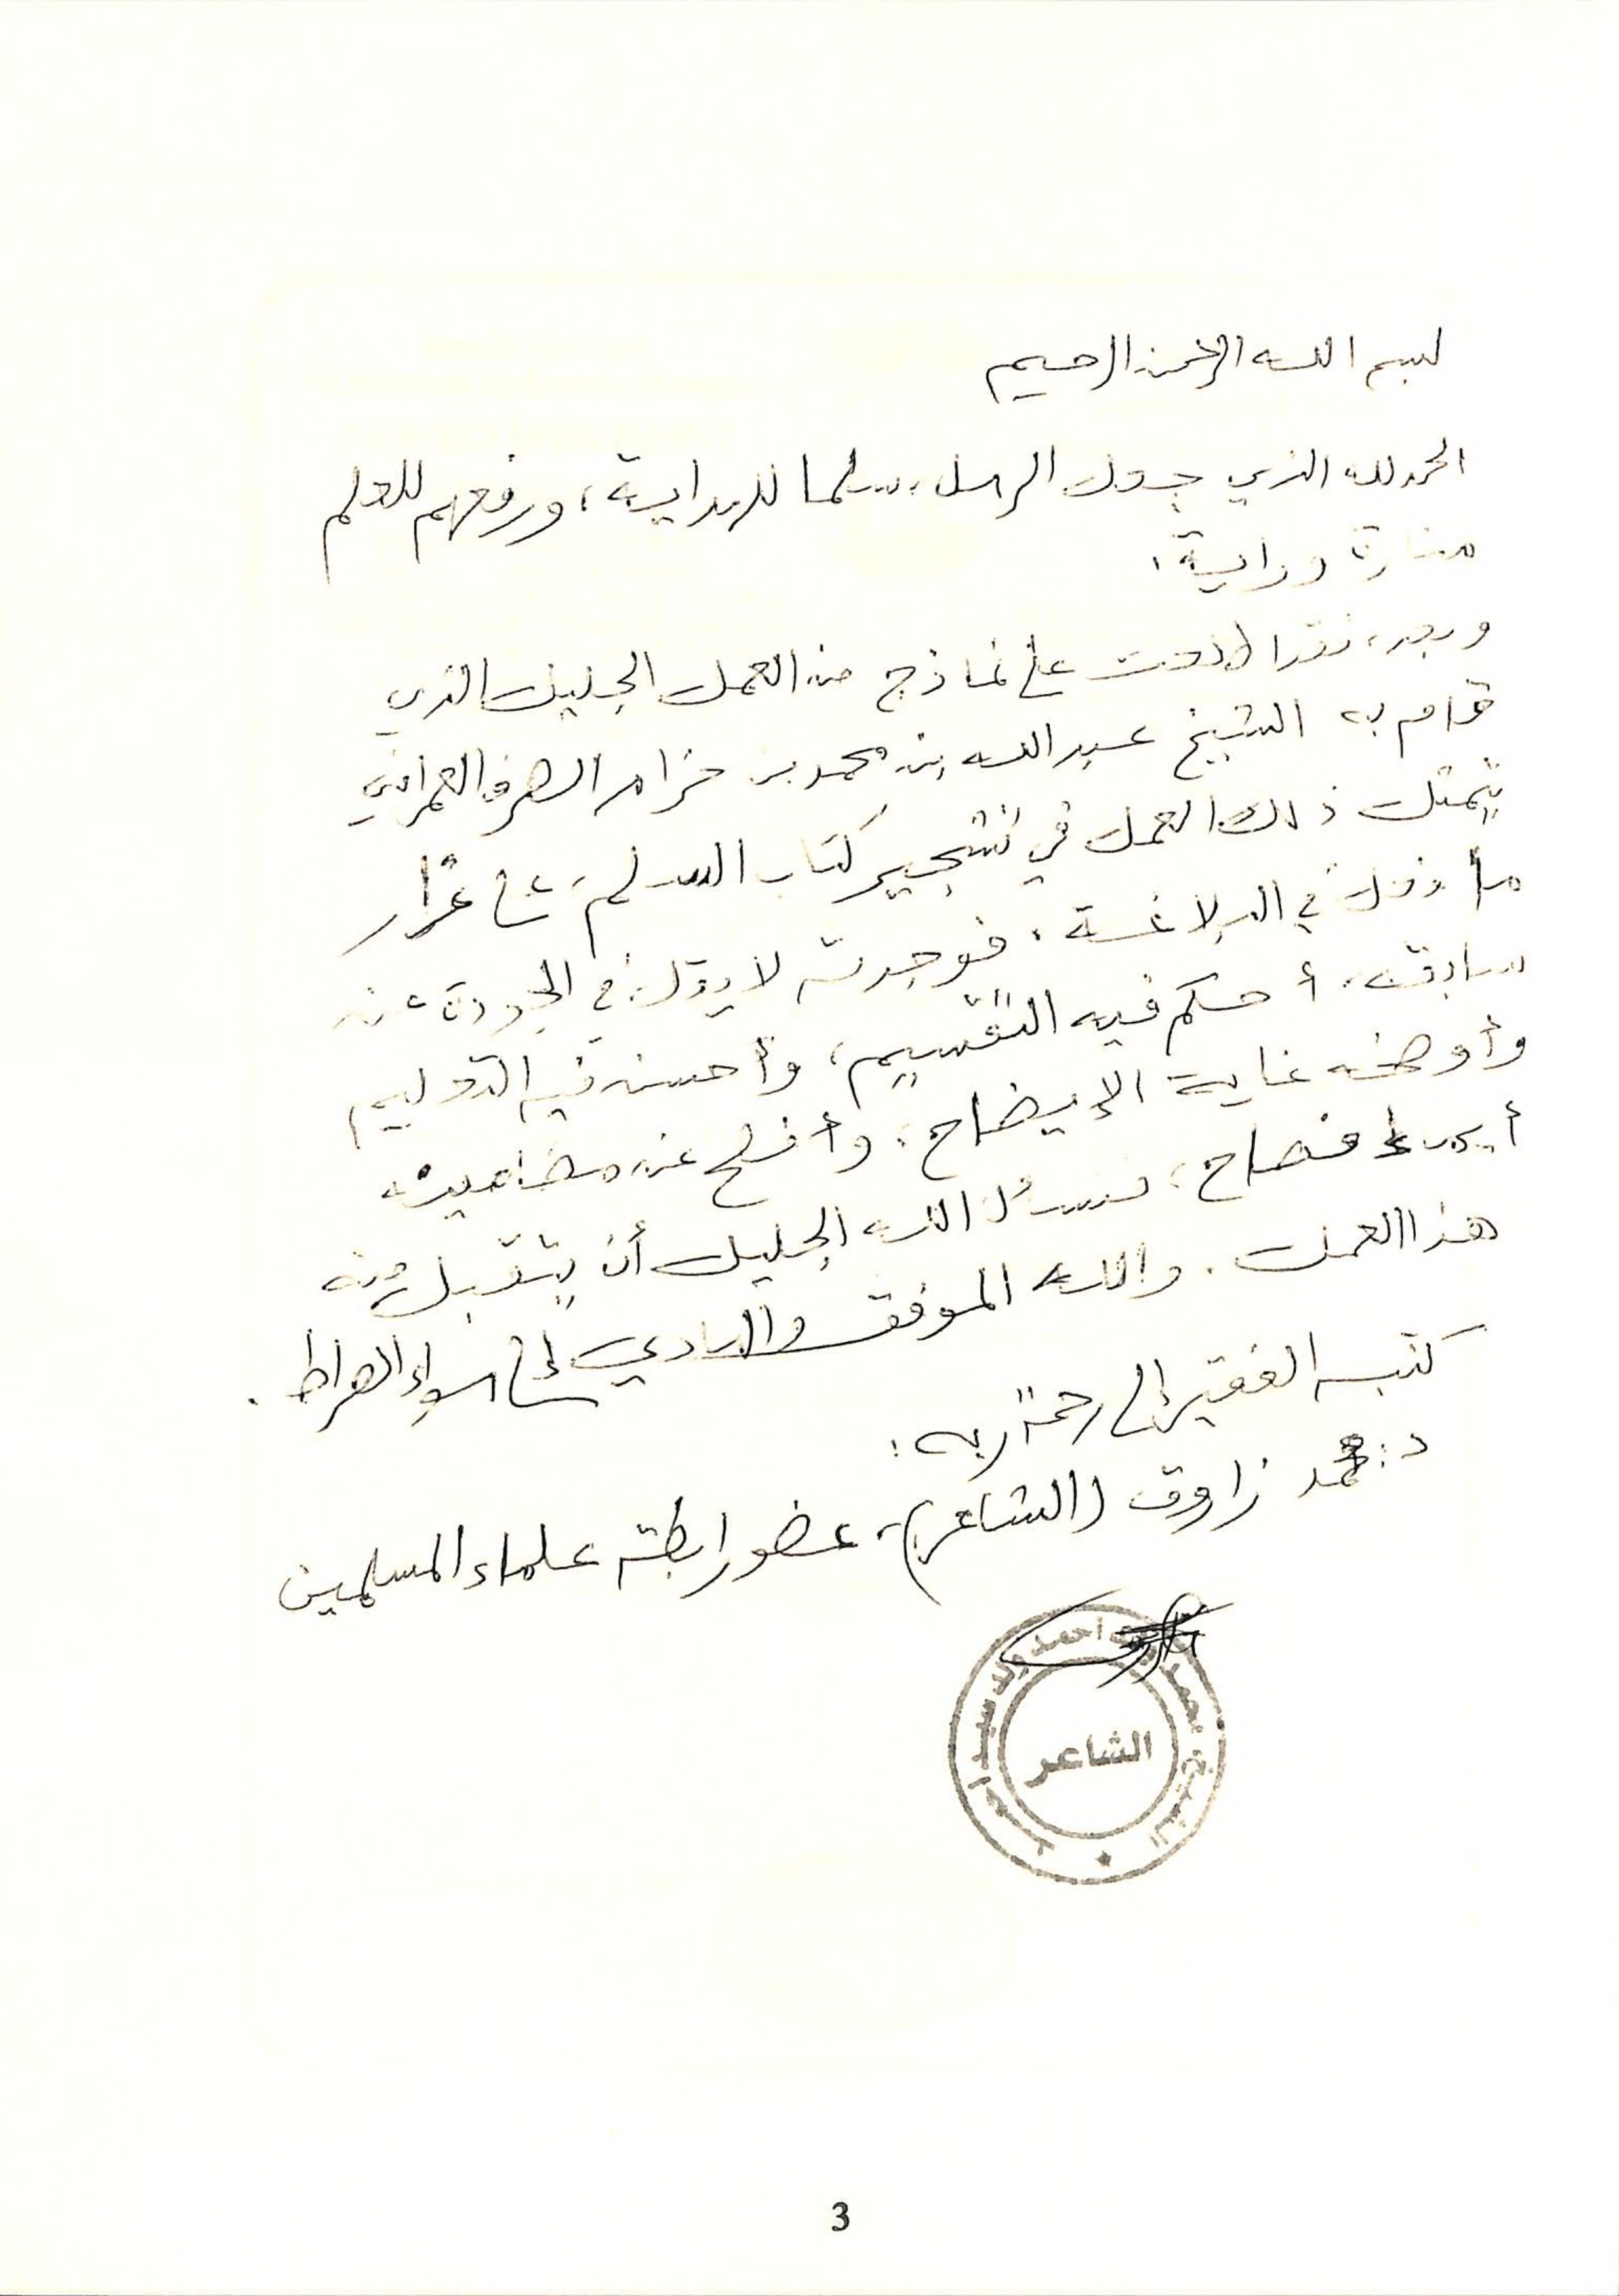 بسم الله الرحمن الرحيم
الحمد لله الذي جعل الرسل سلما للهداية، ورفعهم للعلم
منارة وراية.
وبعد، فقد اطلعت على نماذج من العمل الجليل الذي
قام به الشيخ عبد الله بن محمد بن حزام الصرفي العمراني
يتمثل ذلك العمل في تشجير كتاب السلم، على غرار
ما فعل في البلاغة. فوجدته لا يقل في الجودة عن
سابقه. أحكم فيه التقسيم، وأحسن فيه التعليم
وأوضحه غاية الإيضاح، وأفصح عن مضامينه
أيما إفصاح، فنسأل الله الجليل أن يتقبل منه
هذا العمل. والله الموفق والهادي إلى سواء الصراط.
كتبه الفقير إلى رحمة ربه:
د: محمد زاروق (الشاعر)، عضو رابطة علماء المسلمين
الشيخ محمد أحمد ولد سيد
الشاعر
3